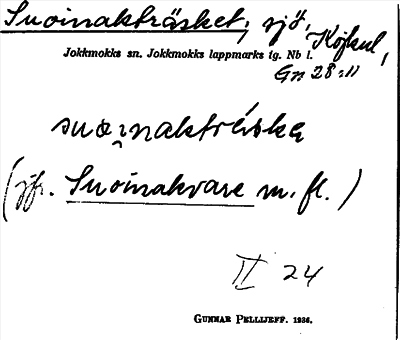 Suoinakträsket, sjö,
Kojkul,
Jokkmokks sn. Jokkmokks lappmarks tg. Nb l.
Gn 28:11
suo̯inakträ́ska
(jfr. Suoinakvare m. fl.)
II 24
GUNNAR PELLIJEFF. 1936.